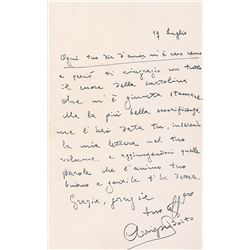 19 Luglio
Ogni tuo dir d'amor m'è caro cenno
e perciò ti ringrazio con tutto
il cuore della cartolina
che m'è giunta stamane.
Ma la più bella
me l'hai data tu, inserendo
la mia lettera nel tuo
volume e aggiungendovi quelle
parole che l'animo tuo
buono e gentile t'ha
Grazie, grazie
tuo aff
Arrigo Boito